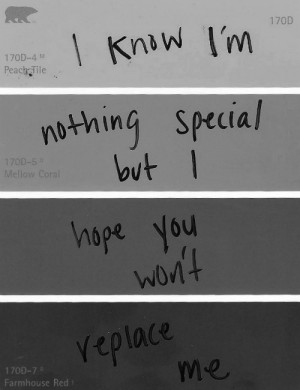 170D
I Know I'm
170D-4 M
Peach Tile
nothing special
170D-5
but I
Mellow Coral
hope you
won't
replace
170D-7
me
Farmhouse Red